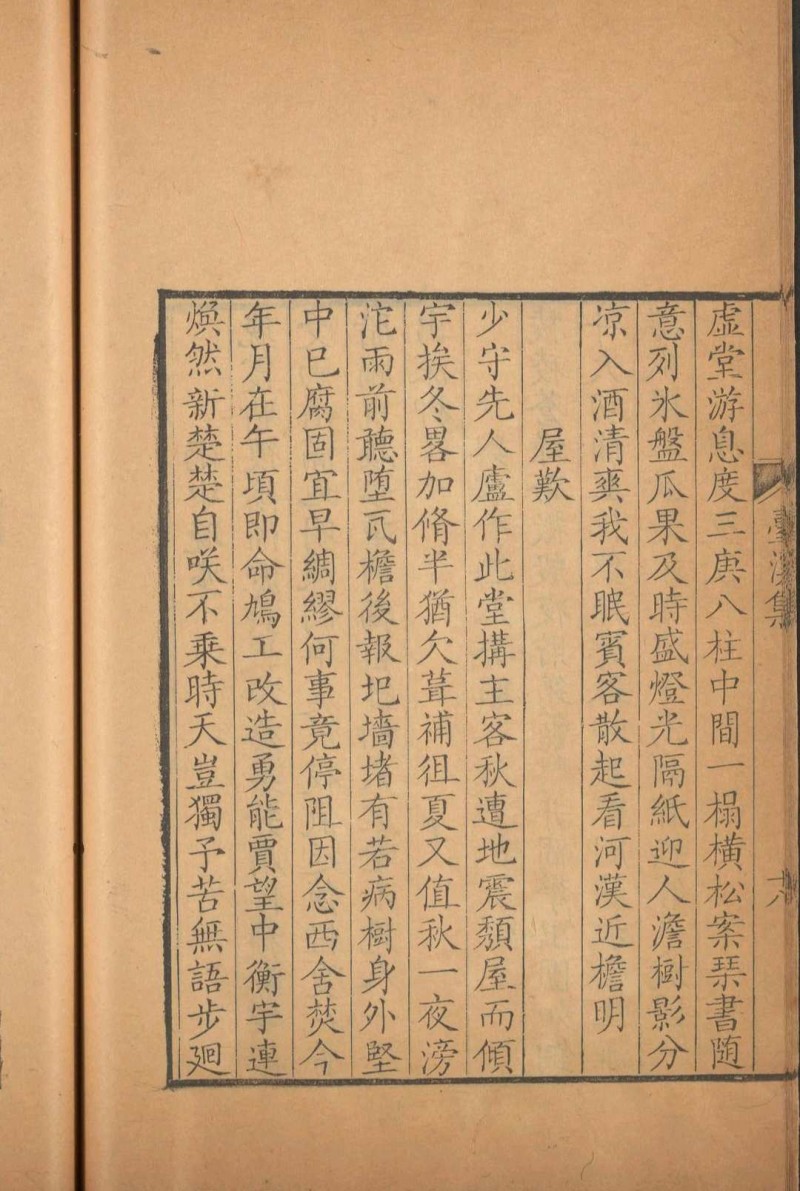 臺溪集
十八
虛堂游息度三庚八柱中間一榻橫松案琹書随
意列氷盤瓜果及時盛燈光隔紙迎人澹樹影分
凉入酒清爽我不眠賓客散起看河漢近檐明
屋歎
少守先人廬作此堂搆主客秋遭地震頽屋而傾
宇挨冬畧加脩半猶欠葺補徂夏又值秋一夜滂
沱雨前聽墮瓦檐後報圯墻堵有若病樹身外堅
中已腐固宜早綢繆何事竟停阻因念西舍焚今
年月在午頃即命鳩工改造勇能賈望中衡宇連
煥然新楚楚自咲不乗時天豈獨予苦無語步廻